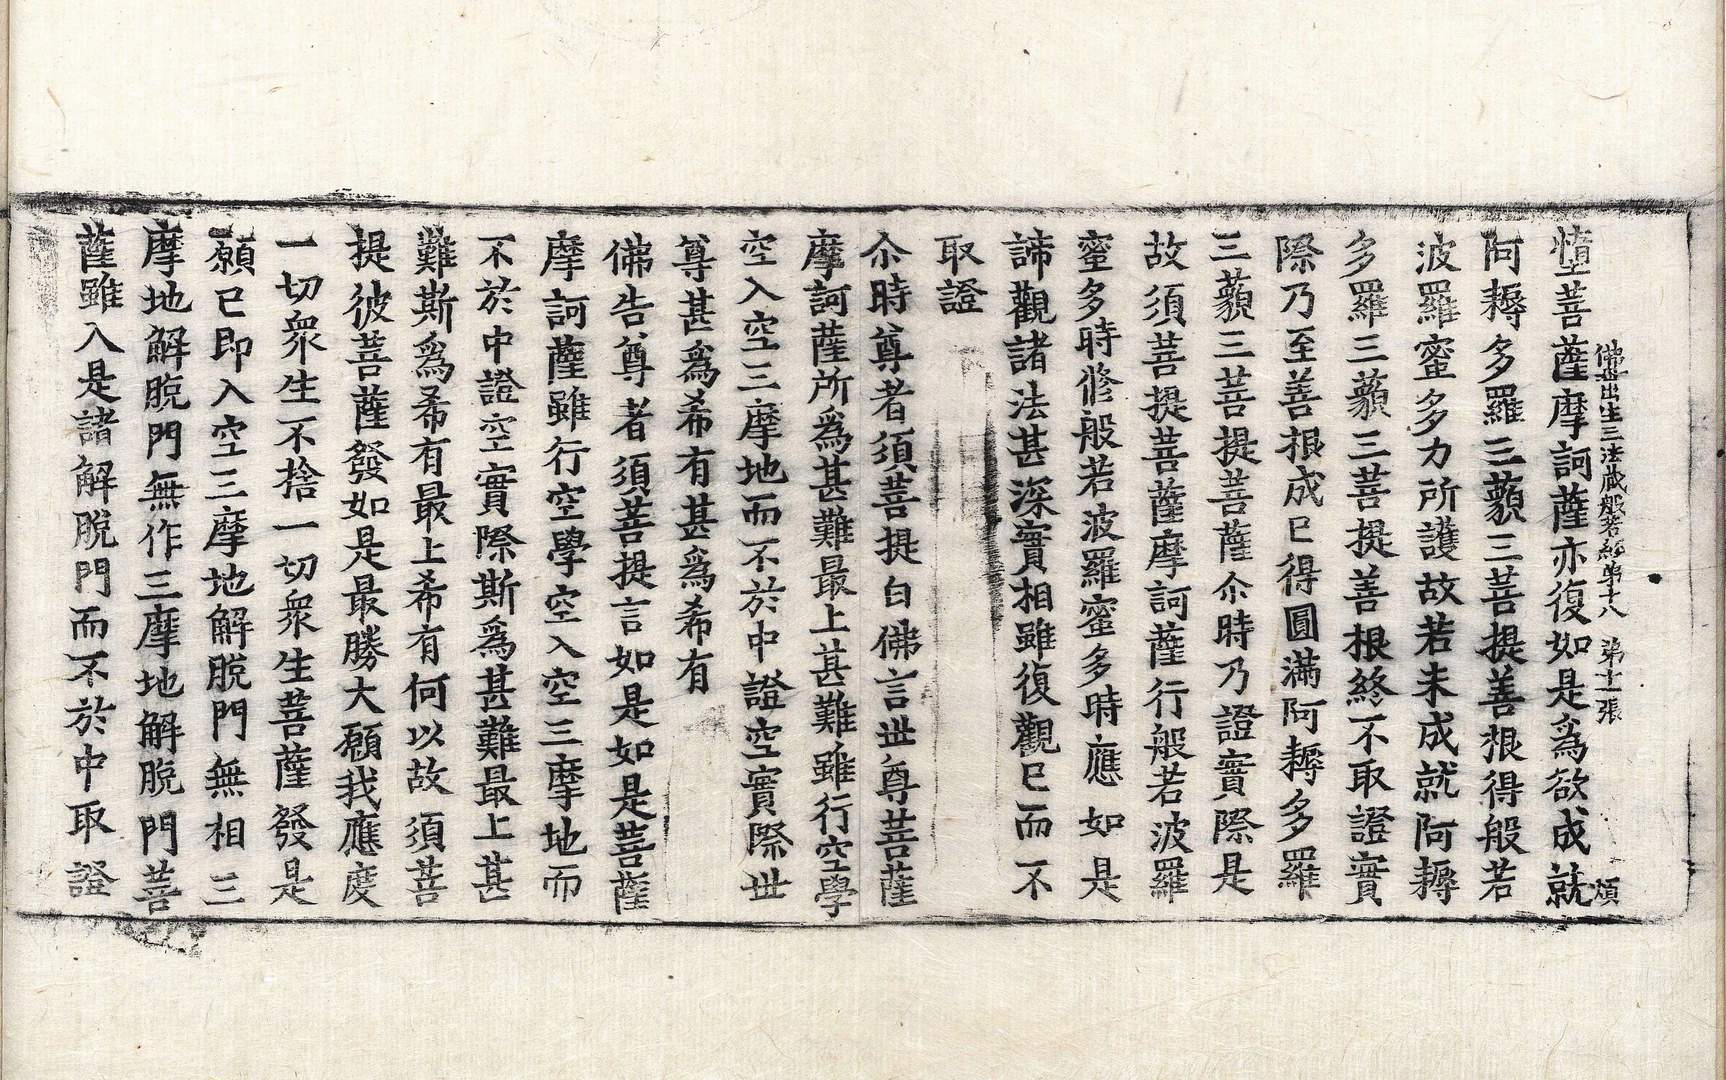 佛母出生三法藏般若經第十八　第十一張　煩
墮菩薩摩訶薩亦復如是爲欲成就
阿耨多羅三藐三菩提善根得般若
波羅蜜多力所護故若未成就阿耨
多羅三藐三菩提善根終不取證實
際乃至善根成已得圓滿阿耨多羅
三藐三菩提菩薩尒時乃證實際是
故須菩提菩薩摩訶薩行般若波羅
蜜多時修般若波羅蜜多時應如是
諦觀諸法甚深實相雖復觀已而不
取證
尒時尊者須菩提白佛言世尊菩薩
摩訶薩所爲甚難最上甚難雖行空學
空入空三摩地而不於中證空實際世
尊甚爲希有甚爲希有
佛告尊者須菩提言如是如是菩薩
摩訶薩雖行空學空入空三摩地而
不於中證空實際斯爲甚難最上甚
難斯爲希有最上希有何以故須菩
提彼菩薩發如是最勝大願我應度
一切衆生不捨一切衆生菩薩發是
願已即入空三摩地解脫門無相三
摩地解脫門無作三摩地解脫門菩
薩雖入是諸解脫門而不於中取證